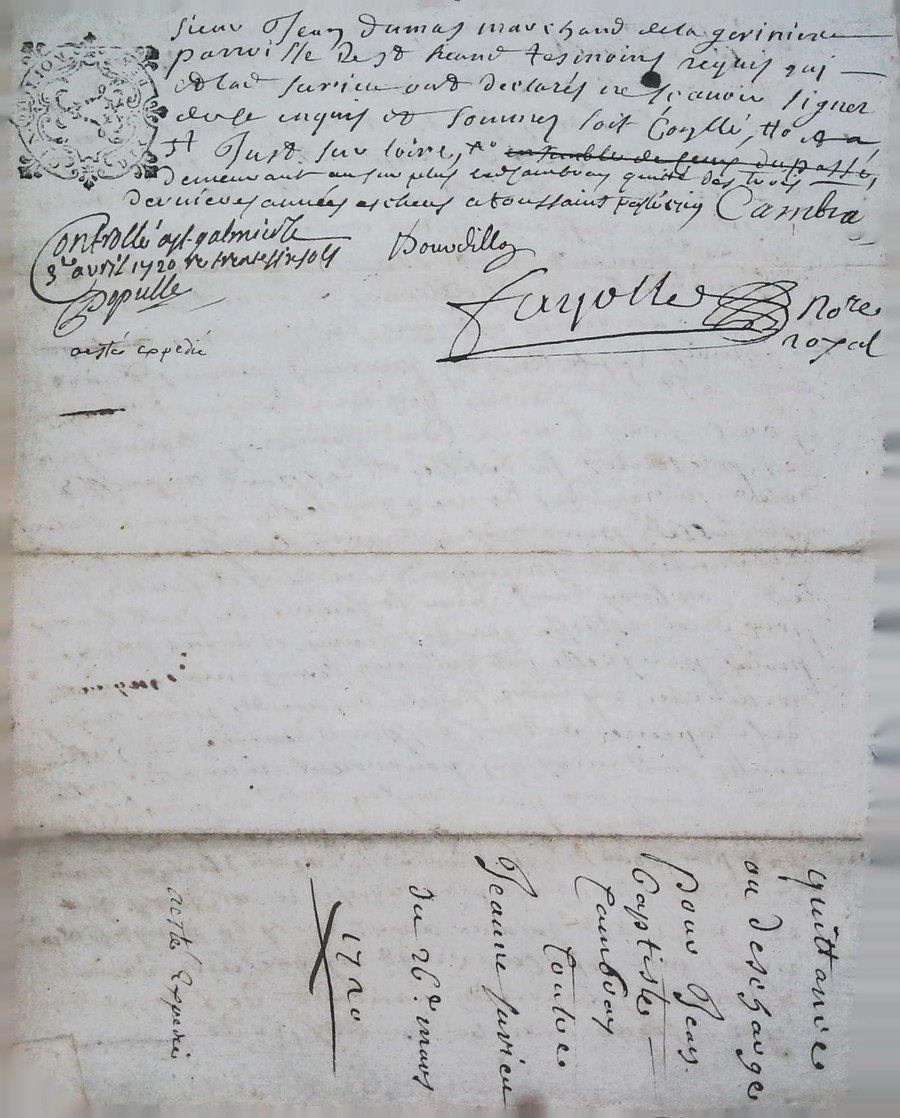 sieur Jean dumas marchand de la
parroisse de st tesmoins requis qui
et lad jurieu ont declarés ne sçavoir signer
de ce enquis et sommes soit Controllé,
st Just sur loire, ensemble de ceux du passé,
demeurant au sur plus led Cambray quitte des trois
dernieres années escheus a toussaint Cambra
Controllé a st galmier le
3e avril 1720 re trente six sols
Bourdillon
Populle
fayolle Nore
royal
acsté expedié
quittance
ou descharge
pour Jean
Baptiste
Cambray
Contre
Jeanne jurieu
du 26e mars
1720
acsté Expedié